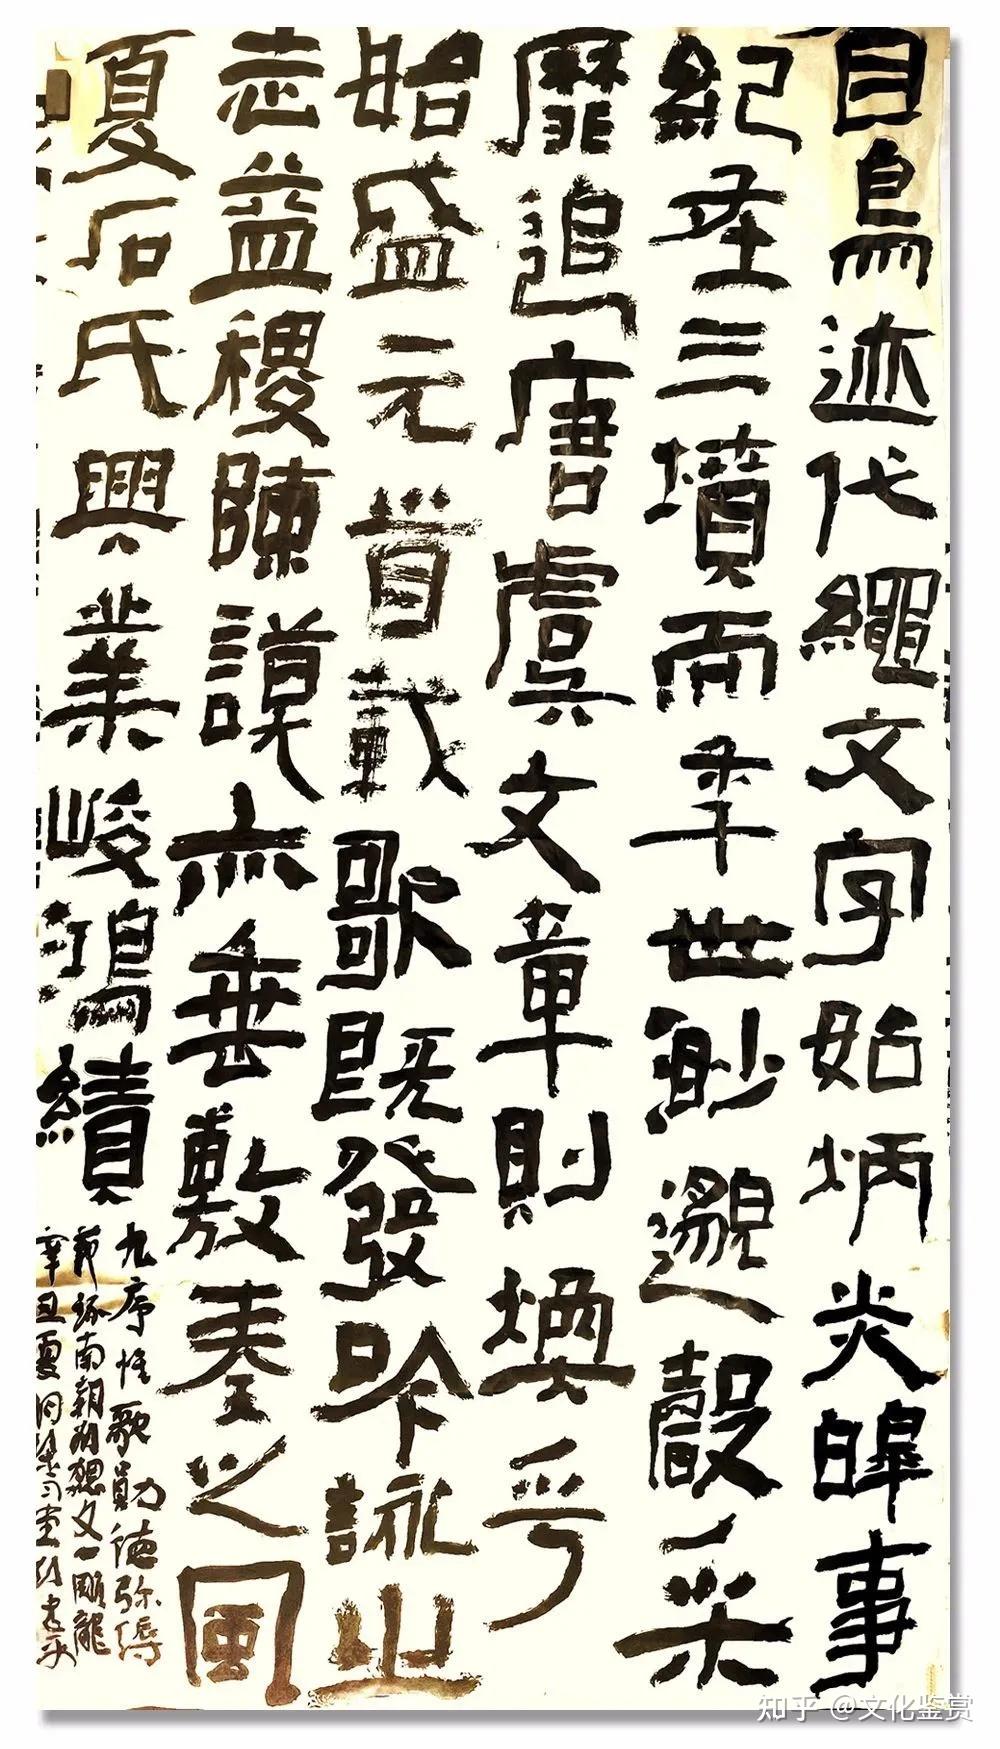 自鳥迹代繩文字始炳炎皞事
紀在三墳而年世眇邈殸采
靡追唐虞文章則煥乎
始盛元首載歌既發吟詠之
志益稷陳謨亦垂敷奏之風
夏后氏興業峻鴻績
九序惟歌勛德弥縟
節錄南朝劉勰文心雕龍
辛丑夏
知乎 @文化鉴赏